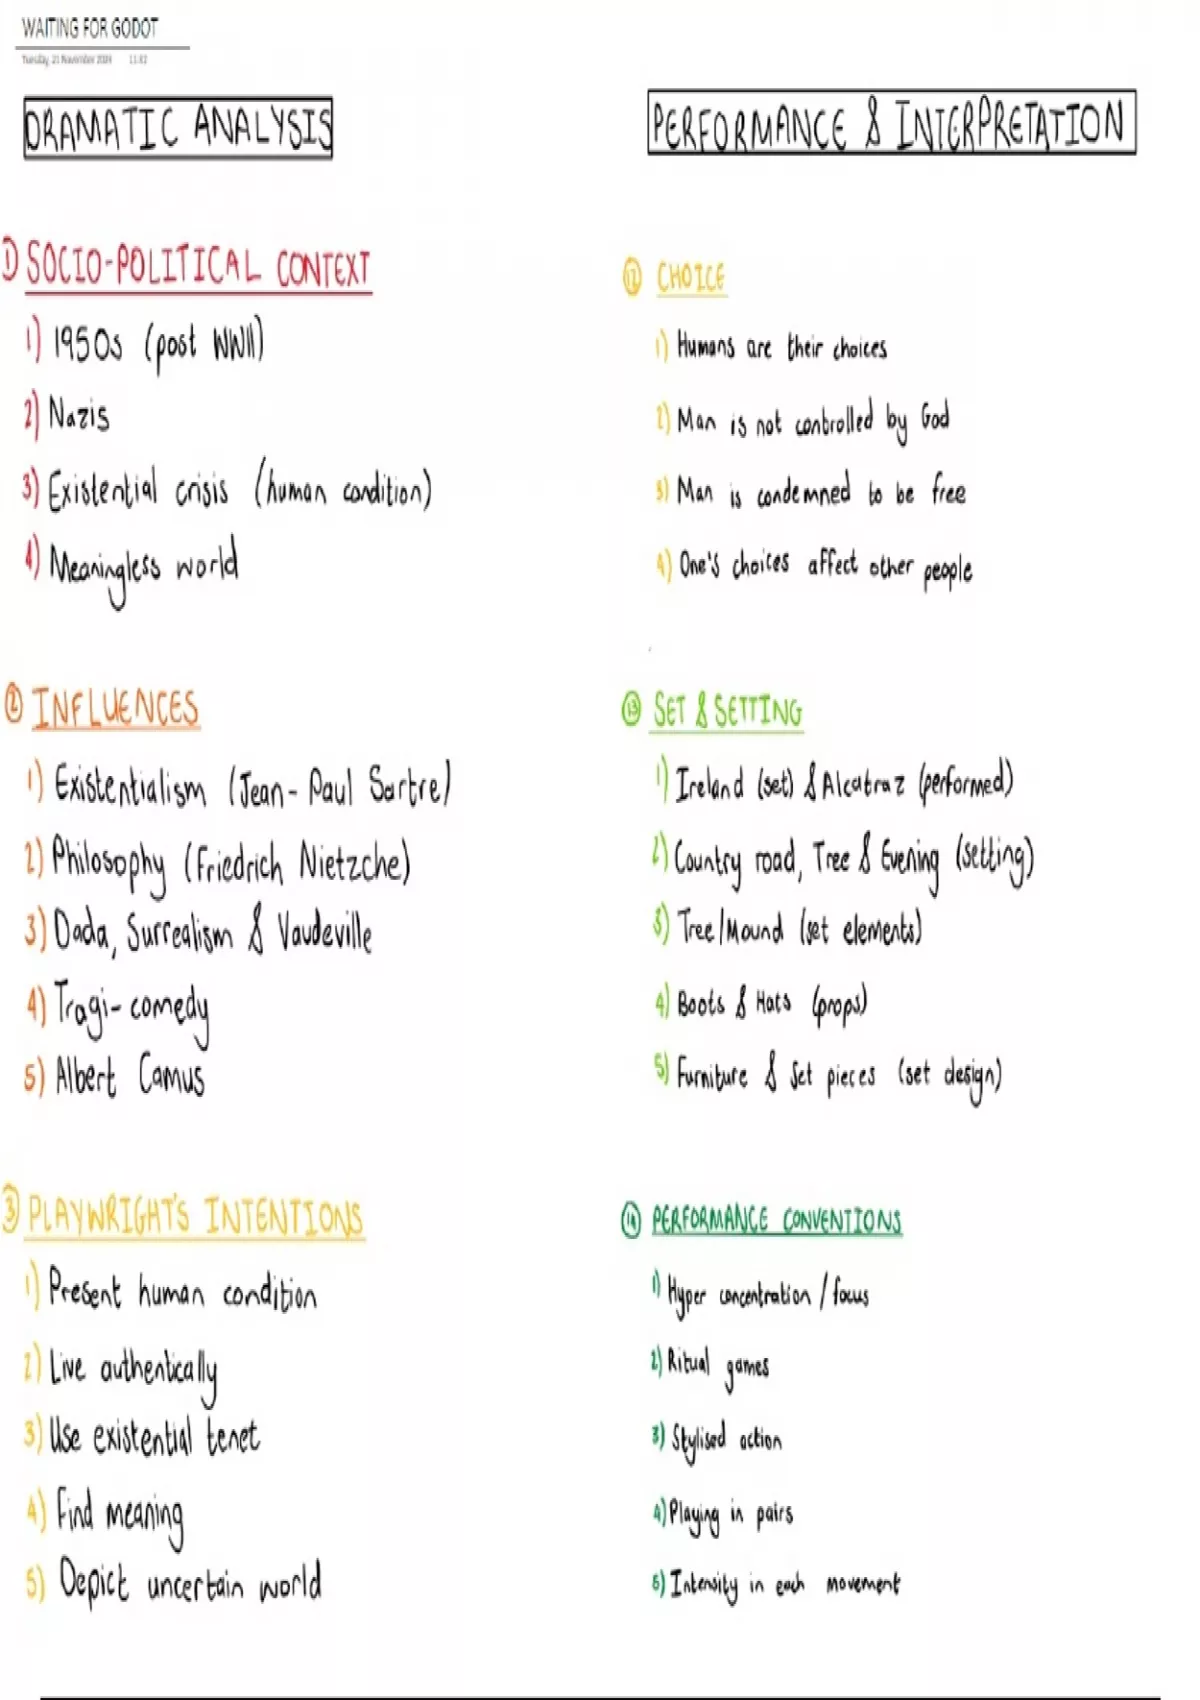 WAITING FOR GODOT
Tuesday, 21 November 2023 11:02
DRAMATIC ANALYSIS
① SOCIO-POLITICAL CONTEXT
1) 1950s (post WWII)
2) Nazis
3) Existential crisis (human condition)
4) Meaningless world
② INFLUENCES
1) Existentialism (Jean-Paul Sartre)
2) Philosophy (Friedrich Nietzche)
3) Dada, Surrealism & Vaudeville
4) Tragi-comedy
5) Albert Camus
③ PLAYWRIGHT'S INTENTIONS
1) Present human condition
2) Live authentically
3) Use existential tenet
4) Find meaning
5) Depict uncertain world
PERFORMANCE & INTERPRETATION
⑫ CHOICE
1) Humans are their choices
2) Man is not controlled by God
3) Man is condemned to be free
4) One's choices affect other people
⑬ SET & SETTING
1) Ireland (set) & Alcatraz (performed)
2) Country road, Tree & Evening (setting)
3) Tree/Mound (set elements)
4) Boots & Hats (props)
5) Furniture & Set pieces (set design)
⑭ PERFORMANCE CONVENTIONS
1) Hyper concentration / focus
2) Ritual games
3) Stylised action
4) Playing in pairs
5) Intensity in each movement